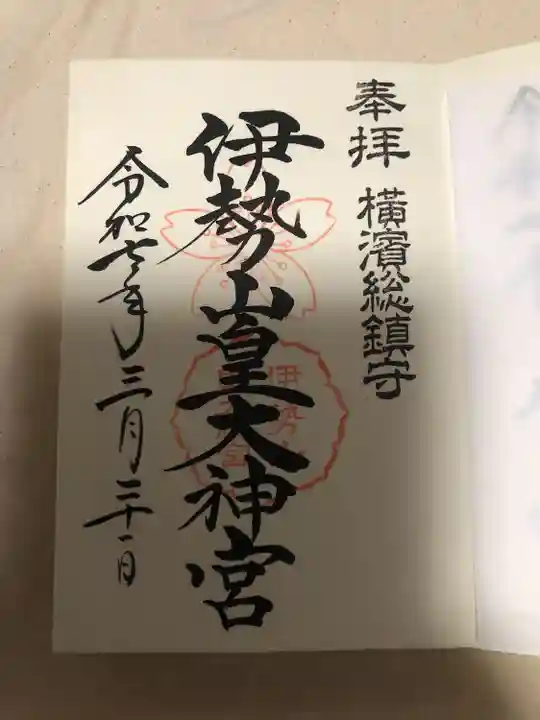 奉拝 横濱総鎮守
伊勢山皇大神宮
令和七年三月二十一日